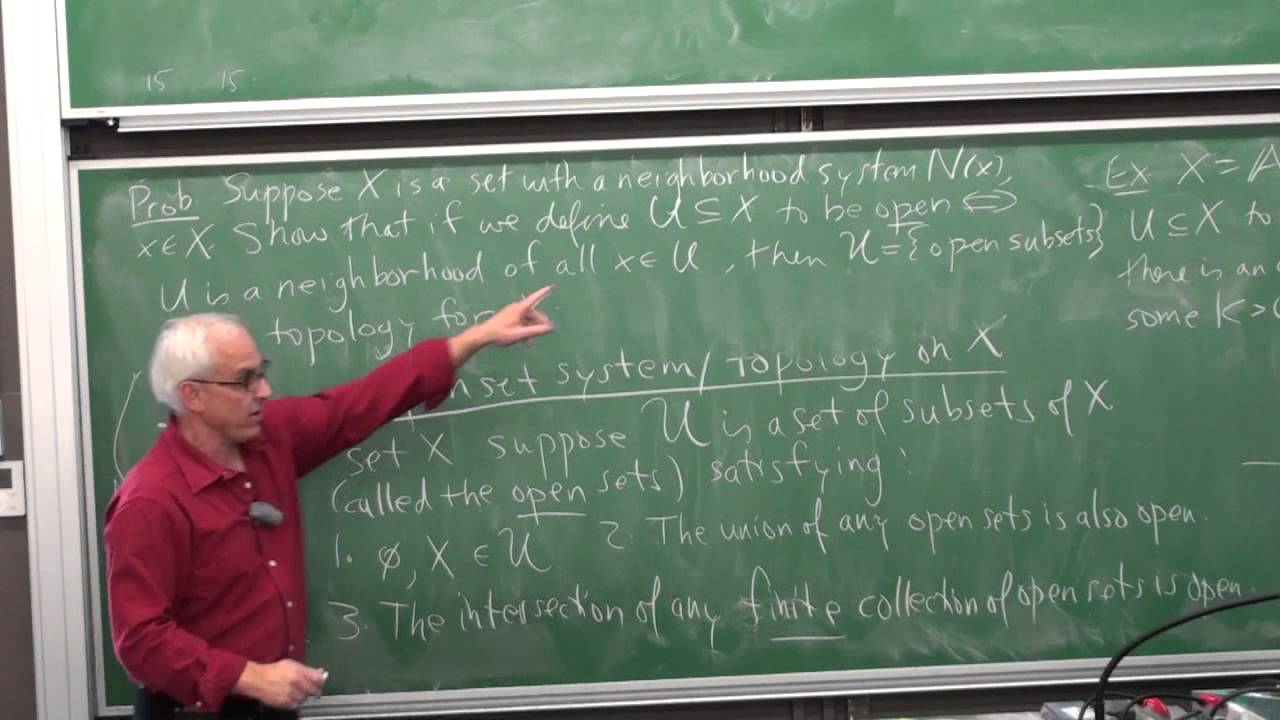 15 15
Prob. Suppose X is a set with a neighborhood system N(x),
x∈X. Show that if we define U⊆X to be open ⇔
U is a neighborhood of all x∈U, then 𝒰={open subsets}
topology for
set system/topology on X
set X suppose 𝒰 is a set of subsets of X
(called the open sets) satisfying:
1. ∅, X ∈ 𝒰 2. The union of any open sets is also open.
3. The intersection of any finite collection of open sets is open.
Ex. X=
U⊆X to
there is an
some K>